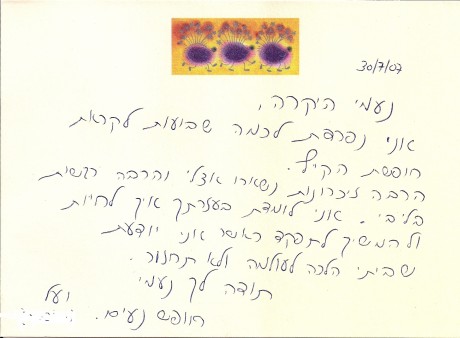 30/7/07
נעמי היקרה,
אני נפרדת לכמה שבועות לקראת
חופשת הקיץ.
הרבה זיכרונות נשארו אצלי והרבה רגשות
בליבי. אני לומדת בעזרתך איך לחיות
ולהמשיך לתפקד כאשר אני יודעת
שביתי הלכה לעולמה ולא תחזור.
תודה לך נעמי
חופש נעים.
יעל